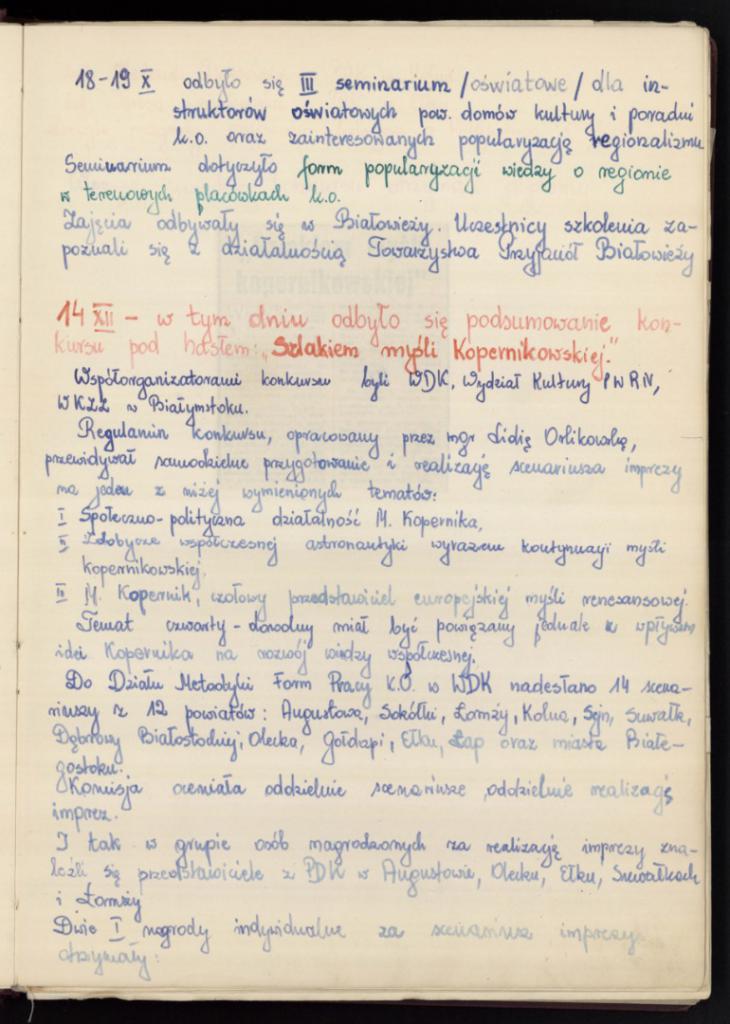 18-19 X odbyło się III seminarium /oświatowe/ dla in-
struktorów oświatowych pow. domów kultury i poradni
k.o. oraz zainteresowanych popularyzacją regionalizmu
Seminarium dotyczyło form popularyzacji wiedzy o regionie
w terenowych placówkach k.o.
Zajęcia odbywały się w Białowieży. Uczestnicy szkolenia za-
poznali się z działalnością Towarzystwa Przyjaciół Białowieży
14 XII - w tym dniu odbyło się podsumowanie kon-
kursu pod hasłem: "Szlakiem myśli Kopernikowskiej."
Współorganizatorami konkursu byli WDK, Wydział Kultury PWRN,
WKZZ w Białymstoku.
Regulamin konkursu, opracowany przez mgr Lidię Orlikowską,
przewidywał samodzielne przygotowanie i realizację scenariusza imprezy
na jeden z niżej wymienionych tematów:
I Społeczno-polityczna działalność M. Kopernika,
II Zdobycze współczesnej astronautyki wyrazem kontynuacji myśli
kopernikowskiej,
III M. Kopernik, czołowy przedstawiciel europejskiej myśli renesansowej.
Temat czwarty - dowolny miał być powiązany jednak z wpływem
idei Kopernika na rozwój wiedzy współczesnej.
Do Działu Metodyki Form Pracy K.O. w WDK nadesłano 14 scena-
riuszy z 12 powiatów: Augustowa, Sokółki, Łomży, Kolna, Sejn, Suwałk,
Dąbrowy Białostockiej, Olecka, Gołdapi, Ełku, Łap oraz miasta Białe-
gostoku.
Komisja oceniała oddzielnie scenariusze, oddzielnie realizację
imprez.
I tak w grupie osób nagrodzonych za realizację imprezy zna-
leźli się przedstawiciele z PDK w Augustowie, Olecku, Ełku, Suwałkach
i Łomży
Dwie I nagrody indywidualne za scenariusz imprezy
otrzymały: